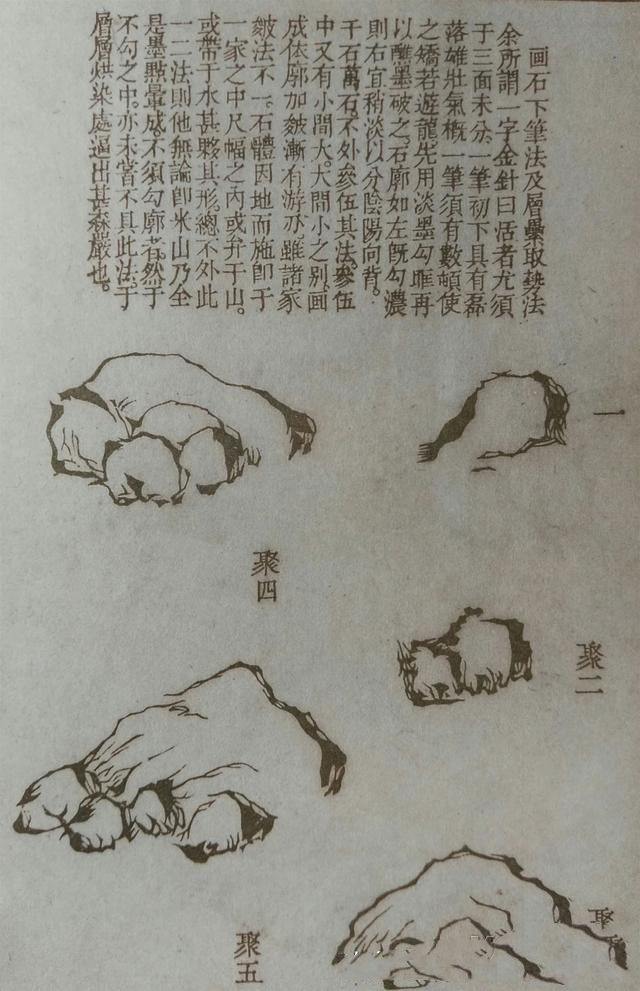 画石下筆法及層壘取勢法
余所謂一字金針曰活者尤須
于三面未分、一筆初下具有磊
落雄壯氣槪一筆須有數頓使
之矯若遊龍。先用淡墨勾再
以醮墨破之。石廓如左旣勾濃
則右宜稍淡以分陰陽向背。
千石萬石。不外參伍其法。參伍
中又有小間大。大間小之別。画
成依廓加皴漸有游刃。雖諸家
皴法不一。石體因地而施卽于
一家之中尺幅之內或弁于山。
或帶于水甚夥其形。總不外此
一二法則他無論卽米山乃全
是墨點暈成。不須勾廓者。然于
不勾之中。亦未嘗不具此法。于
層層烘染處逼出甚森嚴也。
一
聚二
聚
聚四
聚五